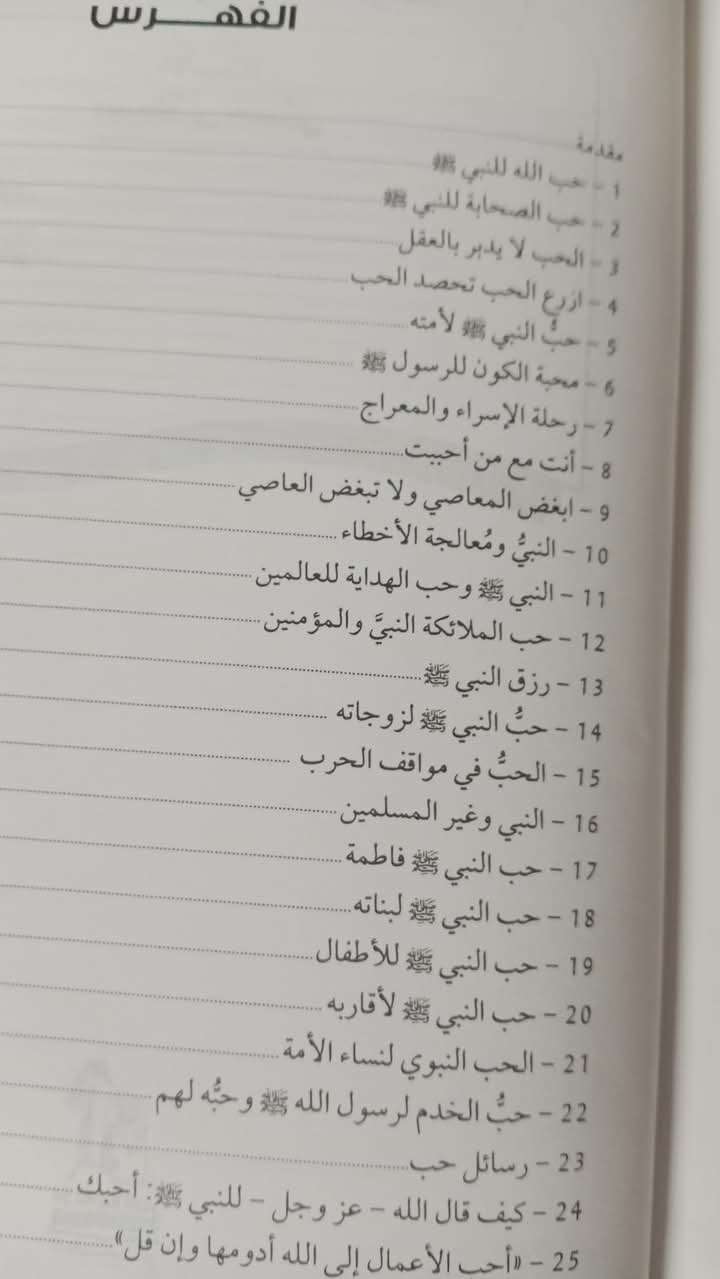 الفهرس
مقدمة
1 - حب الله للنبي ﷺ
2 - حب الصحابة للنبي ﷺ
3 - الحب لا يدبر بالعقل
4 - ازرع الحب تحصد الحب
5 - حبُّ النبي ﷺ لأمته
6 - محبة الكون للرسول ﷺ
7 - رحلة الإسراء والمعراج
8 - أنت مع من أحببت
9 - ابغض المعاصي ولا تبغض العاصي
10 - النبيُّ ومُعالجة الأخطاء
11 - النبي ﷺ وحب الهداية للعالمين
12 - حب الملائكة النبيَّ والمؤمنين
13 - رزق النبي ﷺ
14 - حبُّ النبي ﷺ لزوجاته
15 - الحبُّ في مواقف الحرب
16 - النبي وغير المسلمين
17 - حب النبي ﷺ فاطمة
18 - حب النبي ﷺ لبناته
19 - حب النبي ﷺ للأطفال
20 - حب النبي ﷺ لأقاربه
21 - الحب النبوي لنساء الأمة
22 - حبُّ الخدم لرسول الله ﷺ وحبُّه لهم
23 - رسائل حب
24 - كيف قال الله - عز وجل - للنبي ﷺ: أحبك
25 - «أحب الأعمال إلى الله أدومها وإن قل»